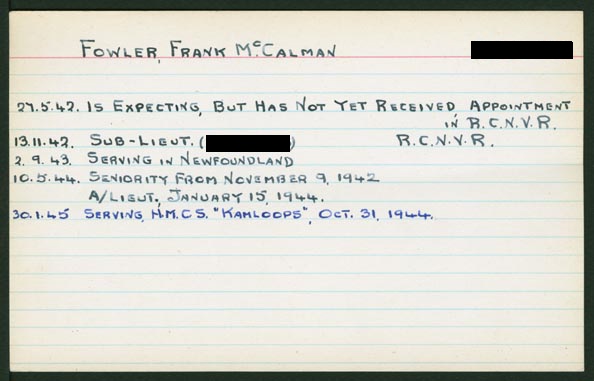 FOWLER, FRANK McCALMAN
27.5.42. IS EXPECTING, BUT HAS NOT YET RECEIVED APPOINTMENT
IN R.C.N.V.R.
13.11.42. SUB-LIEUT. ( ) R.C.N.V.R.
2.9.43. SERVING IN NEWFOUNDLAND
10.5.44. SENIORITY FROM NOVEMBER 9, 1942
A/LIEUT., JANUARY 15, 1944.
30.1.45 SERVING, H.M.C.S. "KAMLOOPS", OCT. 31, 1944.